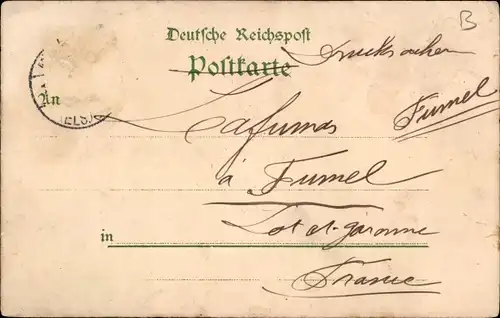 B
Deutsche Reichspost
Postkarte Drucksachen
An
Lafumas
Fumel
à Fumel
Lot et-garonne
in
France